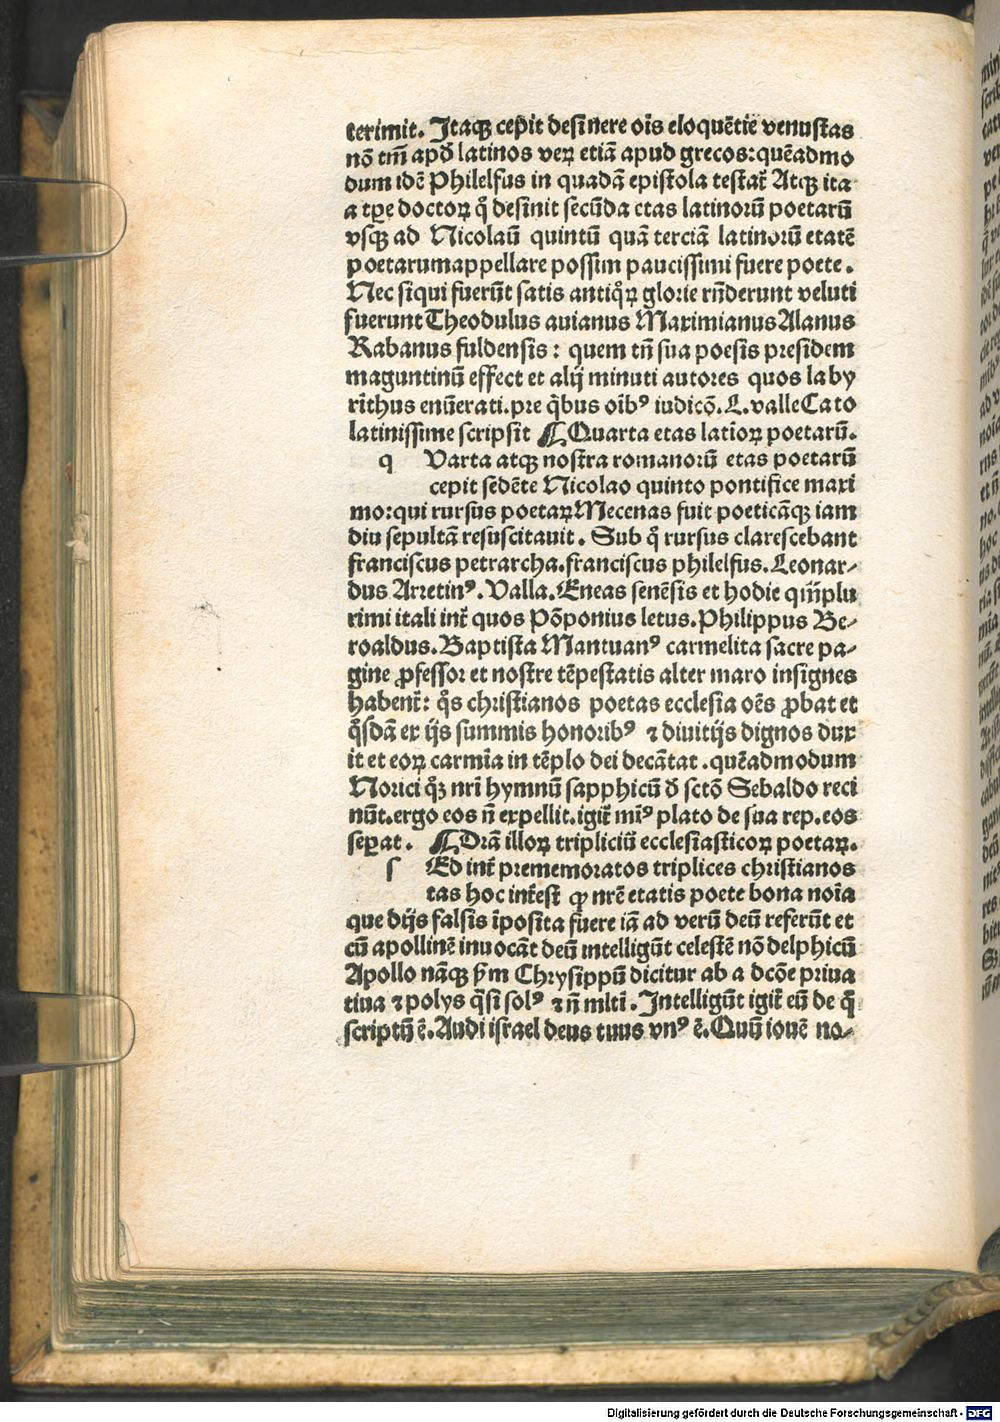 terimit. Itaqꝫ cep̄it desinere oīs eloquētie venustas
nō tm̄ apđ latinos veꝝ etiā apud grecos:quēadmo
dum idē Philelfus in quadā epistola testat̄ Atqꝫ ita
a tꝑe doctoꝝ q̊ desinit secūda etas latinorū poetarū
vsqꝫ ad Nicolaū quintū quā terciā latinorū etatē
poetarumappellare possim paucissimi fuere poete.
Nec siqui fuerūt satis antiq̊ꝝ glorie rn̄derunt veluti
fueruntTheodulus auianus MaximianusAlanus
Rabanus fuldensis: quem tn̄ sua poesis presidem
maguntinū effecit et alij minuti autores quos laby
rīthus enūerati.pre q̄bus oībꝰ iudicō.L.valleCato
latinissime scripsit ¶Quarta etas latīoꝝ poetarū.
q Varta atqꝫ nostra romanorū etas poetarū
cepit sedēte Nicolao quinto pontifice maxi
mo:qui rursus poetaꝝMecenas fuit poeticāqꝫ iam
diu sepultā resuscitauit. Sub q̊ rursus clarescebant
franciscus petrarcha.franciscus philelfus.Leonar⸗
dus Arretinꝰ.Valla.Eneas senēsis et hodie qm̄plu
rimi itali int̄ quos Pōponius letus.Philippus Be⸗
roaldus.Baptista Mantuanꝰ carmelita sacre pa⸗
gine ꝓfessor et nostre tēpestatis alter maro insignes
habent̄: q̊s christianos poetas ecclesia oēs ꝓbat et
q̊sdā ex ijs summis honoribꝰ ⁊ diuitijs dignos dux
it et eoꝝ carmīa in tēplo dei decātat .quēadmodum
Norici q̊ꝫ nr̄i hymnū sapphicū đ sctō Sebaldo reci
nūt.ergo eos n̄ expellit.igit̄ miꝰ plato de sua rep.eos
seꝑat. ¶Dr̄ā illoꝝ tripliciū ecclesiasticoꝝ poetaꝝ.
s Ed int̄ prememoratos triplices christianos
tas hoc int̄est ꝙ nr̄e etatis poete bona noīa
que dijs falsis īposita fuere iā ad verū deū referūt et
cū apollinē inuocāt deū intelligūt celestē nō delphicū
Apollo nāqꝫ ẜm Chrysippū dicitur ab a dcōe priua
tiua ⁊ polys q̄si solꝰ ⁊ n̄ mlti. Intelligūt igit̄ eū de q̊
scriptū ē.Audi israel deus tuus vnꝰ ē.Quū iouē no⸗
Digitalisierung gefördert durch die Deutsche Forschungsgemeinschaft - DFG